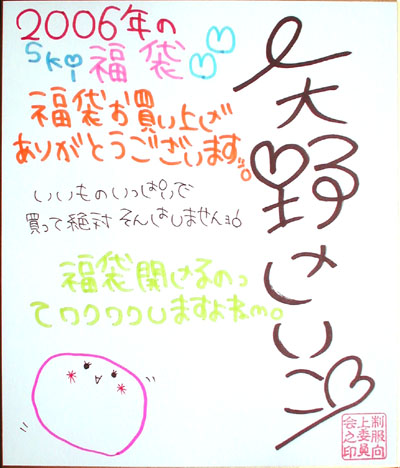 2006年の
SKi福袋♡♡
福袋お買い上げ
ありがとうございます。
いいものいっぱいで
買って絶対そんはしませんョ
福袋開けるのっ
てワクワクしますよね
制服向
上委員
会之印